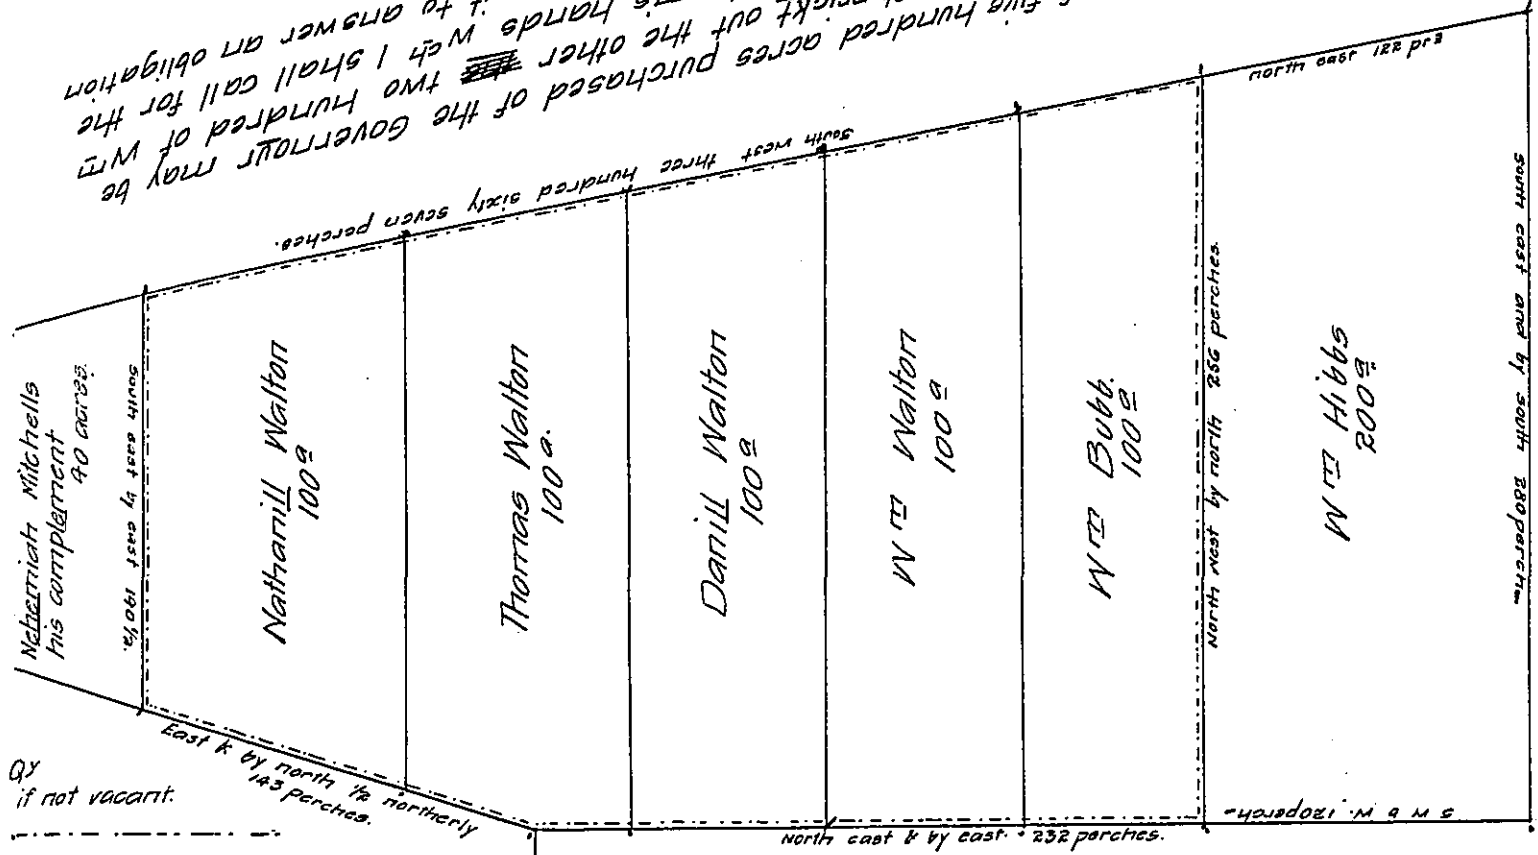 five hundred acres purchased of the Governoyr may be
out the other two hundred of Wm
hands wch I shall call for the
it to answer an obligation
South west three hundred sixty seven perches.
north east 122 prs
Nehemiah Mitchells
his complement
90 acres.
South east by east 190 1/2.
Nathanill Walton
100 a
Thomas Walton
100 a.
Danill Walton
100 a
Wm Walton
100 a
Wm Bubb.
100 a
North West by north 256 perches.
Wm Hibbs
200 a
South east and by south 280 perches
Qy
if not vacant.
East & by north 1/2 northerly
143 perches.
North east & by east. 232 perches.
S W b W. 120 perches